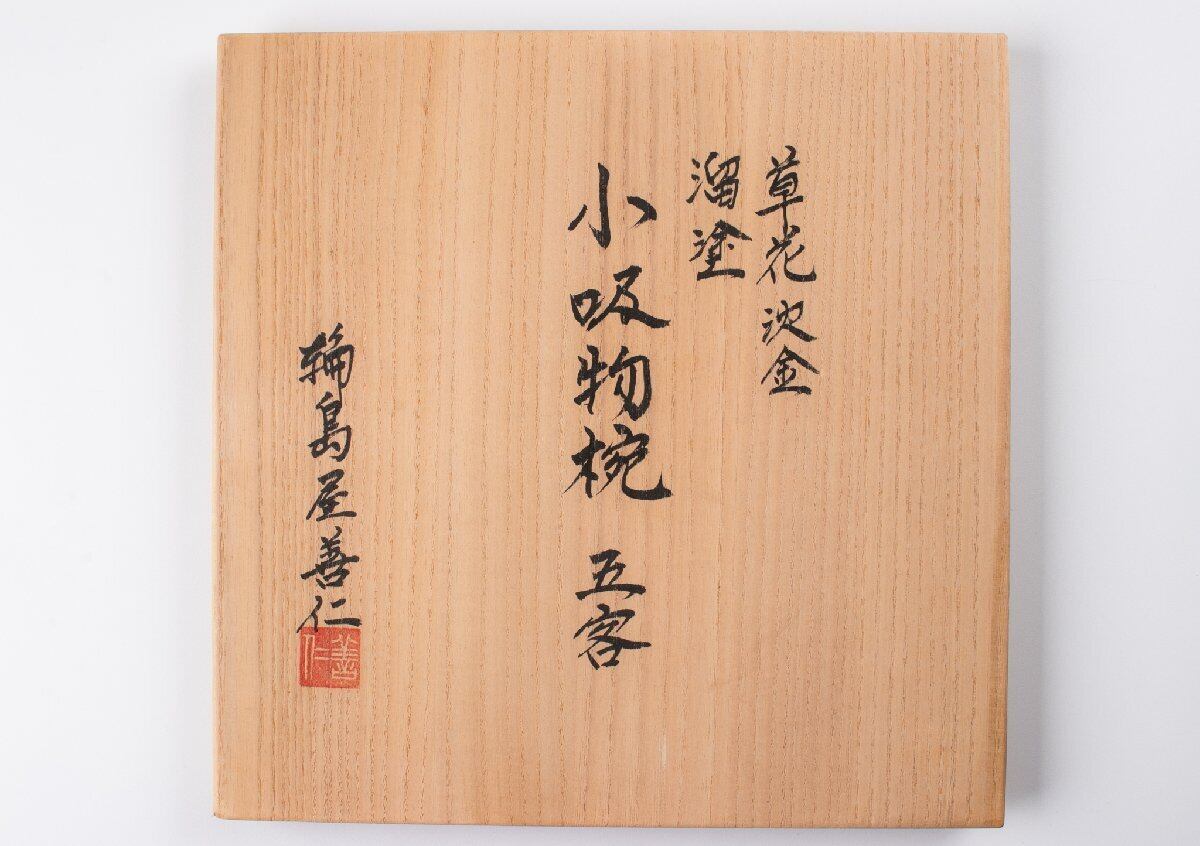 草花沈金
溜塗
小吸物椀 五客
輪島屋善仁
善仁